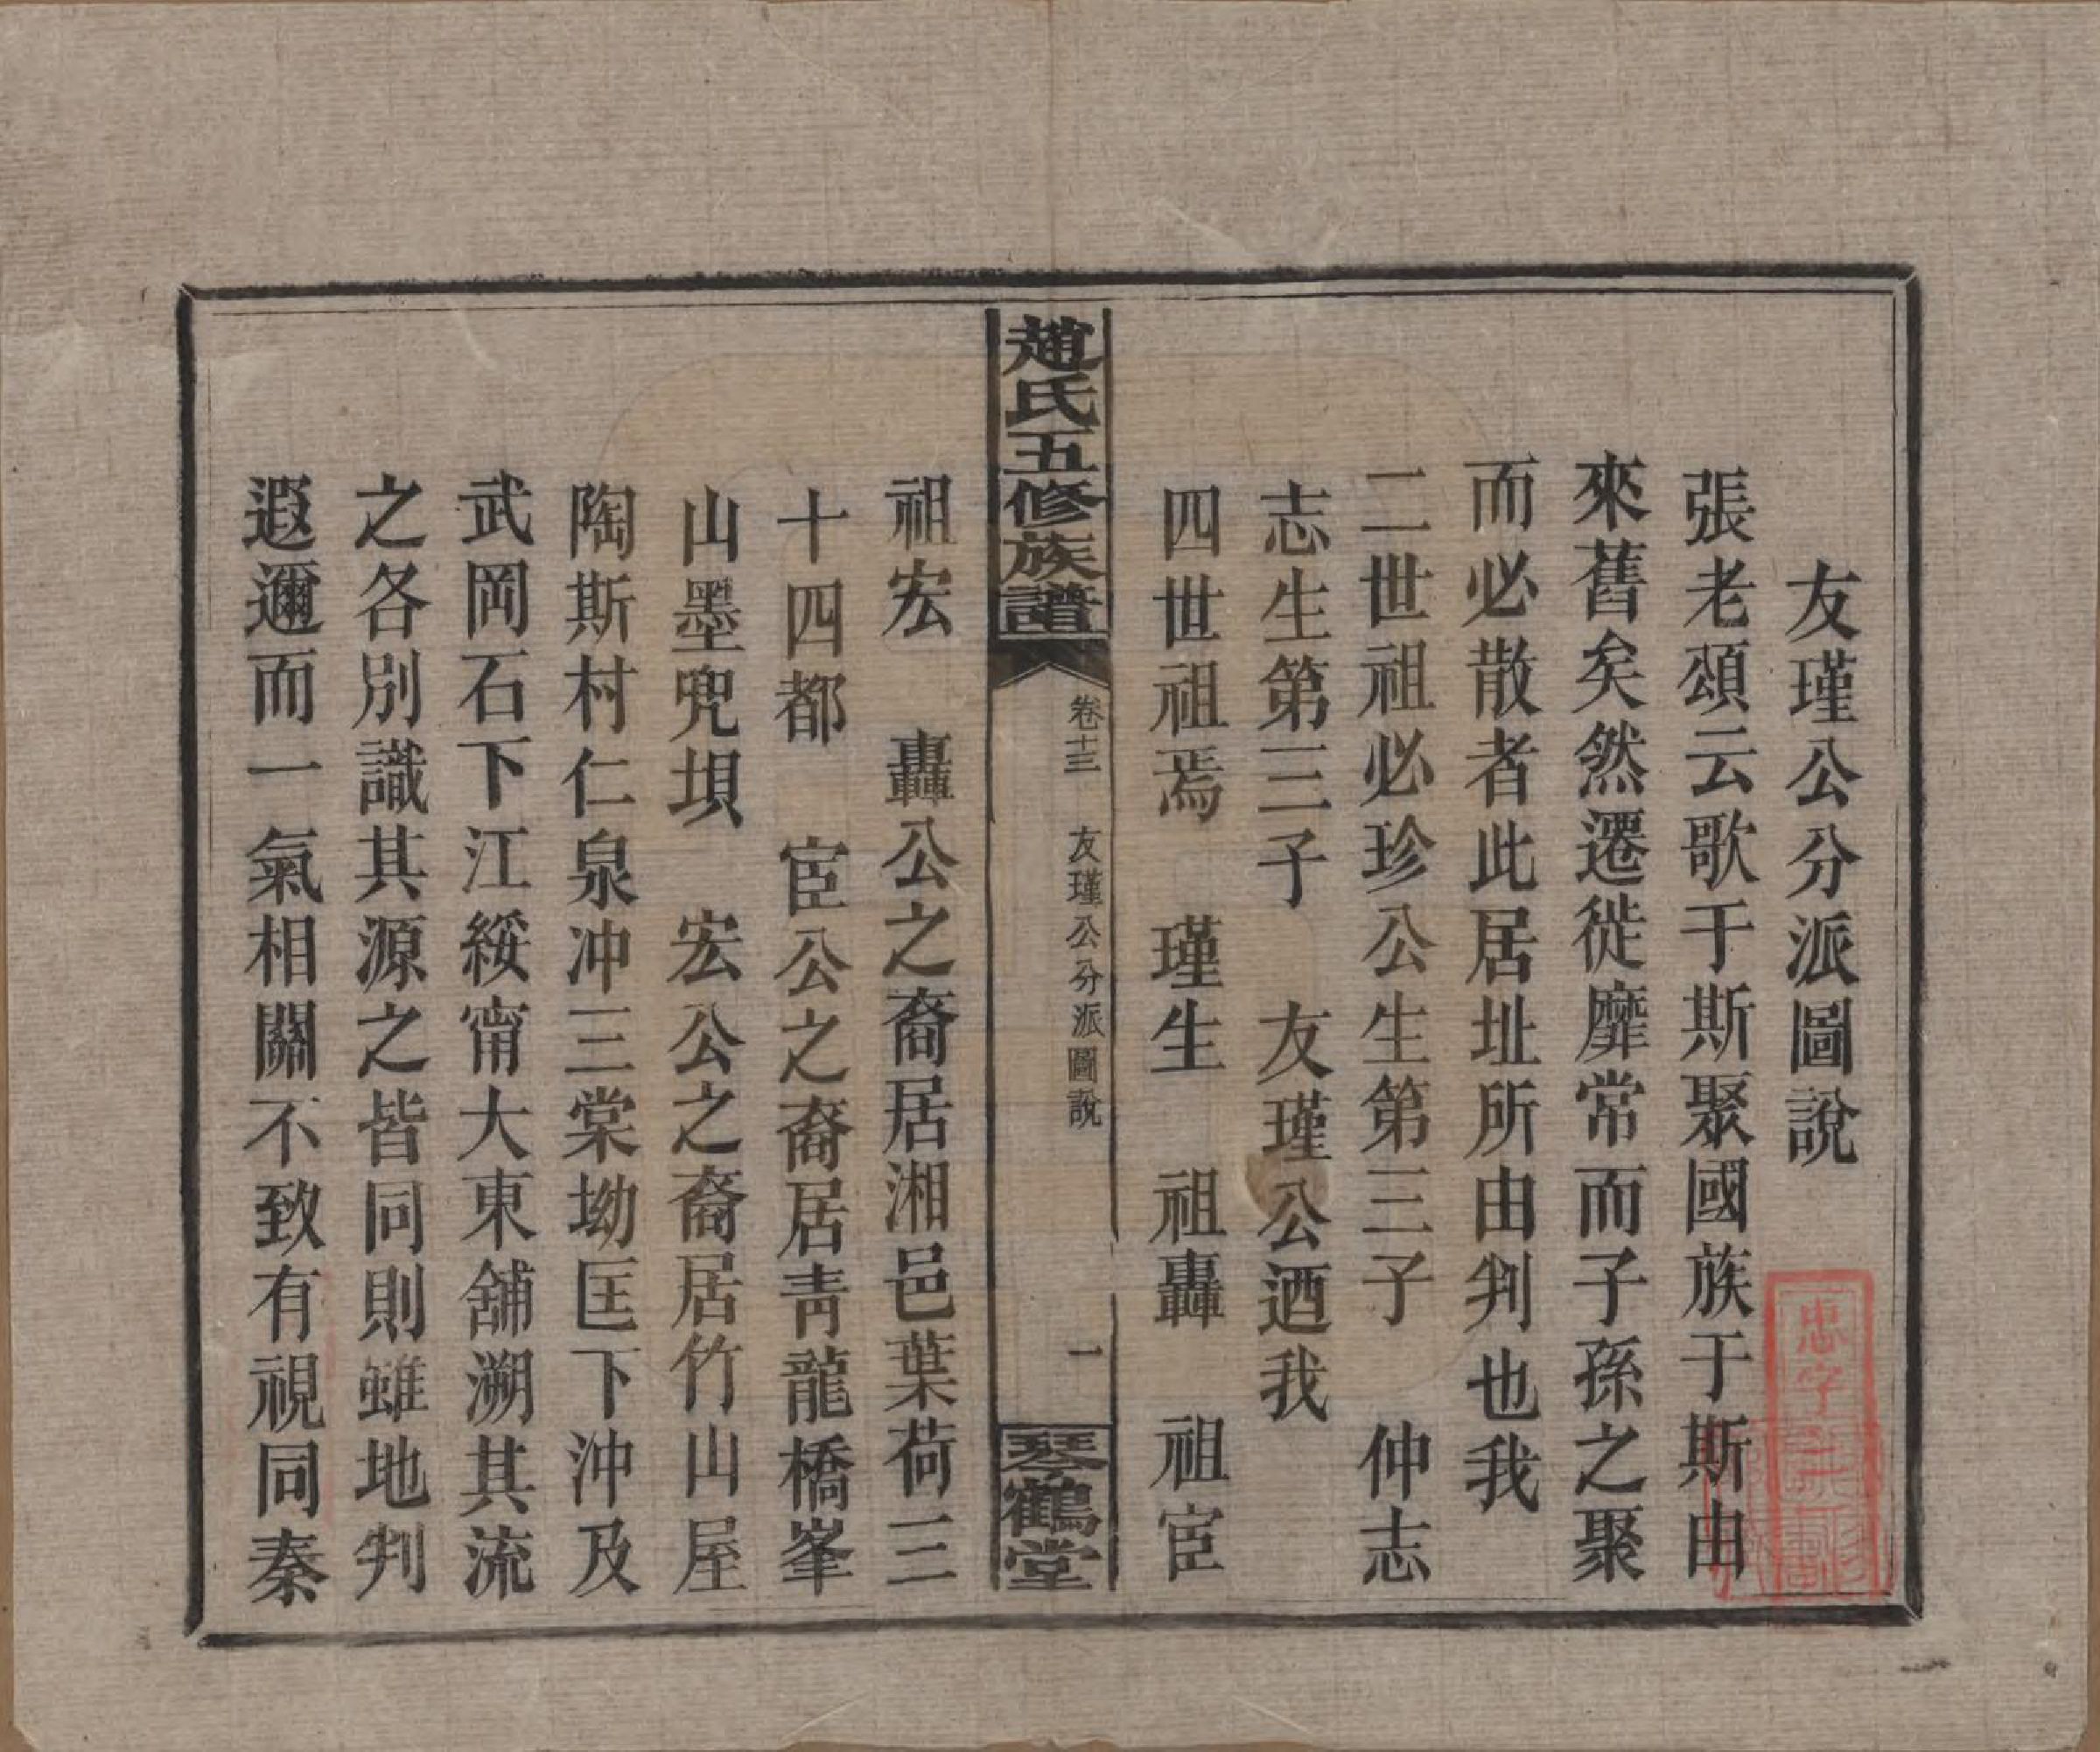 友瑾公分派圖說
張老頌云歌于斯聚國族于斯由
來舊矣然遷徙靡常而子孫之聚
而必散者此居址所由判也我
二世祖必珍公生第三子　仲志
志生第三子　友瑾公迺我
四世祖焉　瑾生　祖轟　祖宦
趙氏五修族譜
卷十三　友瑾公分派圖說
一
琴鶴堂
祖宏　轟公之裔居湘邑葉荷三
十四都　宦公之裔居青龍橋峯
山墨兜垻　宏公之裔居竹山屋
陶斯村仁泉冲三棠坳匡下沖及
武岡石下江綏甯大東舖溯其流
之各別識其源之皆同則雖地判
遐邇而一氣相關不致有視同秦
忠字